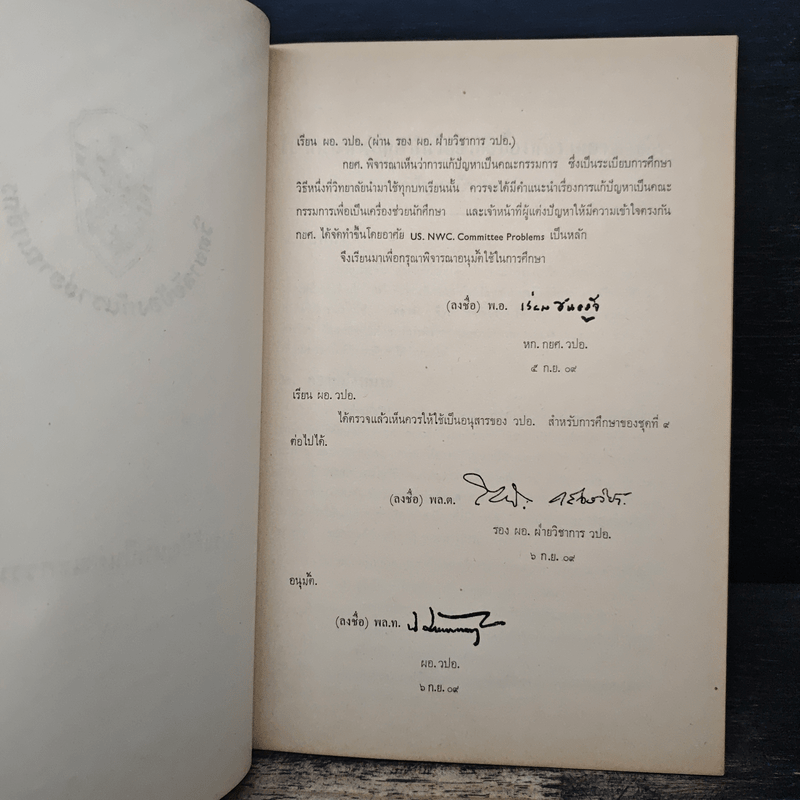 เรียน ผอ. วปอ. (ผ่าน รอง ผอ. ฝ่ายวิชาการ วปอ.)
กยศ. พิจารณาเห็นว่าการแก้ปัญหาเป็นคณะกรรมการ ซึ่งเป็นระเบียบการศึกษา
วิธีหนึ่งที่วิทยาลัยนำมาใช้ทุกบทเรียนนั้น ควรจะได้มีคำแนะนำเรื่องการแก้ปัญหาเป็นคณะ
กรรมการเพื่อเป็นเครื่องช่วยนักศึกษา และเจ้าหน้าที่ผู้แต่งปัญหาให้มีความเข้าใจตรงกัน
กยศ. ได้จัดทำขึ้นโดยอาศัย US. NWC. Committee Problems เป็นหลัก
จึงเรียนมาเพื่อกรุณาพิจารณาอนุมัติใช้ในการศึกษา
(ลงชื่อ) พ.อ.
หก. กยศ. วปอ.
๕ ก.ย. ๐๙
เรียน ผอ. วปอ.
ได้ตรวจแล้วเห็นควรให้ใช้เป็นอนุสารของ วปอ. สำหรับการศึกษาของชุดที่ ๙
ต่อไปได้.
(ลงชื่อ) พล.ต.
รอง ผอ. ฝ่ายวิชาการ วปอ.
๖ ก.ย. ๐๙
อนุมัติ.
(ลงชื่อ) พล.ท.
ผอ. วปอ.
๖ ก.ย. ๐๙